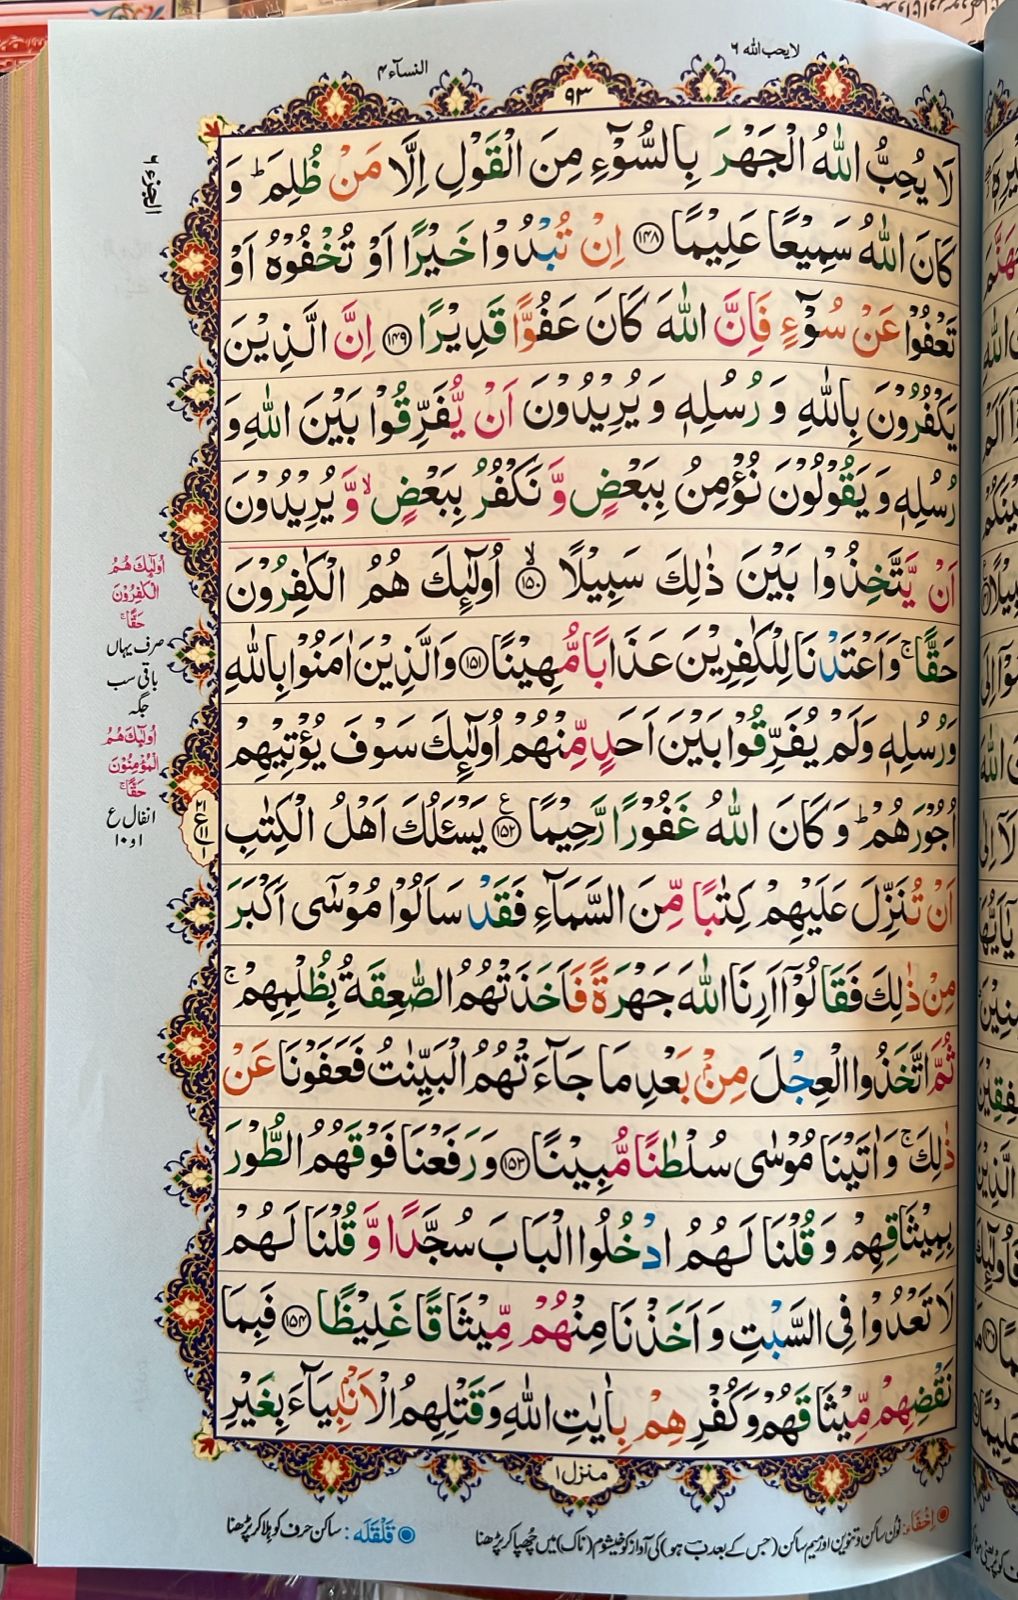 لا یحب اللہ ٦
النسآء ۴
٩٣
الجزء ٦
لَا يُحِبُّ اللّٰهُ الْجَهْرَ بِالسُّوْٓءِ مِنَ الْقَوْلِ اِلَّا مَنْ ظُلِمَ ؕ وَ
كَانَ اللّٰهُ سَمِيْعًا عَلِيْمًا ﴿۱۴۸﴾ اِنْ تُبْدُوْا خَيْرًا اَوْ تُخْفُوْهُ اَوْ
تَعْفُوْا عَنْ سُوْٓءٍ فَاِنَّ اللّٰهَ كَانَ عَفُوًّا قَدِيْرًا ﴿۱۴۹﴾ اِنَّ الَّذِيْنَ
يَكْفُرُوْنَ بِاللّٰهِ وَ رُسُلِهٖ وَ يُرِيْدُوْنَ اَنْ يُّفَرِّقُوْا بَيْنَ اللّٰهِ وَ
رُسُلِهٖ وَ يَقُوْلُوْنَ نُؤْمِنُ بِبَعْضٍ وَّ نَكْفُرُ بِبَعْضٍ ۙ وَّ يُرِيْدُوْنَ
اَنْ يَّتَّخِذُوْا بَيْنَ ذٰلِكَ سَبِيْلًا ۙ﴿۱۵۰﴾ اُولٰٓئِكَ هُمُ الْكٰفِرُوْنَ
حَقًّا ۚ وَاَعْتَدْنَا لِلْكٰفِرِيْنَ عَذَابًا مُّهِيْنًا ﴿۱۵۱﴾ وَالَّذِيْنَ اٰمَنُوْا بِاللّٰهِ
وَرُسُلِهٖ وَلَمْ يُفَرِّقُوْا بَيْنَ اَحَدٍ مِّنْهُمْ اُولٰٓئِكَ سَوْفَ يُؤْتِيْهِمْ
اُجُوْرَهُمْ ؕ وَ كَانَ اللّٰهُ غَفُوْرًا رَّحِيْمًا ﴿۱۵۲﴾ يَسْـَٔلُكَ اَهْلُ الْكِتٰبِ
اَنْ تُنَزِّلَ عَلَيْهِمْ كِتٰبًا مِّنَ السَّمَآءِ فَقَدْ سَاَلُوْا مُوْسٰٓى اَكْبَرَ
مِنْ ذٰلِكَ فَقَالُوْٓا اَرِنَا اللّٰهَ جَهْرَةً فَاَخَذَتْهُمُ الصّٰعِقَةُ بِظُلْمِهِمْ ۚ
ثُمَّ اتَّخَذُوا الْعِجْلَ مِنْۢ بَعْدِ مَا جَآءَتْهُمُ الْبَيِّنٰتُ فَعَفَوْنَا عَنْ
ذٰلِكَ ۚ وَاٰتَيْنَا مُوْسٰى سُلْطٰنًا مُّبِيْنًا ﴿۱۵۳﴾ وَرَفَعْنَا فَوْقَهُمُ الطُّوْرَ
بِمِيْثَاقِهِمْ وَ قُلْنَا لَهُمُ ادْخُلُوا الْبَابَ سُجَّدًا وَّ قُلْنَا لَهُمْ
لَا تَعْدُوْا فِى السَّبْتِ وَ اَخَذْنَا مِنْهُمْ مِّيْثَاقًا غَلِيْظًا ﴿۱۵۴﴾ فَبِمَا
نَقْضِهِمْ مِّيْثَاقَهُمْ وَكُفْرِهِمْ بِاٰيٰتِ اللّٰهِ وَقَتْلِهِمُ الْاَنْۢبِيَآءَ بِغَيْرِ
اُولٰٓئِكَ هُمُ
الْكٰفِرُوْنَ
حَقًّا ۚ
صرف یہاں
باقی سب
جگہ
اُولٰٓئِكَ هُمُ
الْمُؤْمِنُوْنَ
حَقًّا ۚ
انفال ع
١ و ١٠
منزل ١
اِخْفَاء: نون ساکن و تنوین اور میم ساکن (جس کے بعد ب ہو) کی آواز کو خیشوم (ناک) میں چھپا کر پڑھنا
قَلْقَلَه: ساکن حرف کو ہلا کر پڑھنا